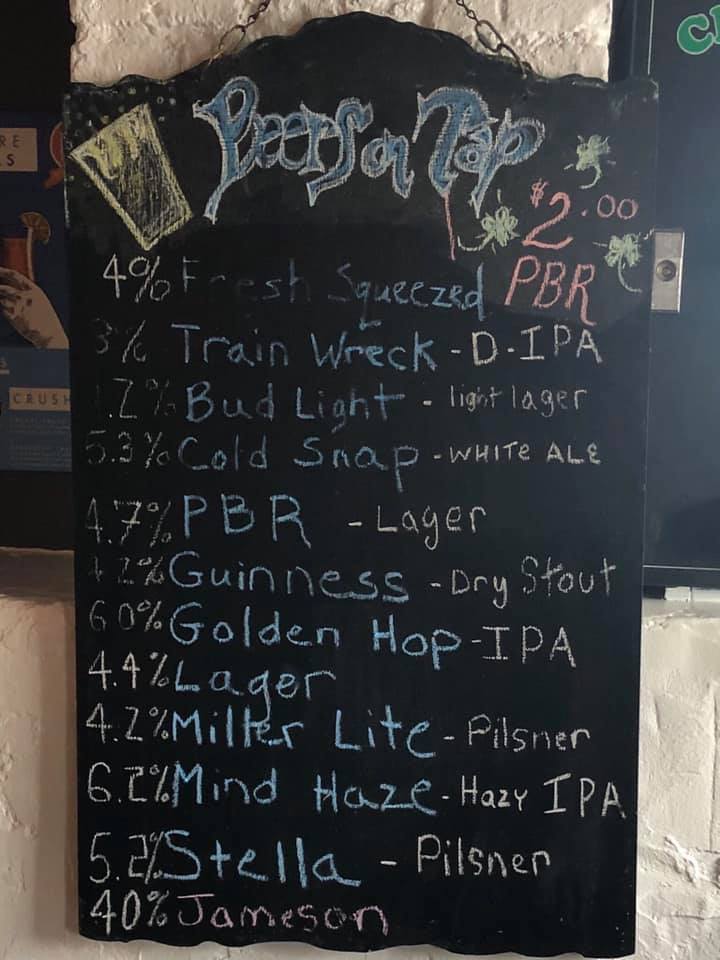 Beers on Tap
$2.00
PBR
4% Fresh Squeezed
3% Train Wreck - D-IPA
.2% Bud Light - light lager
5.3% Cold Snap - WHITE ALE
4.7% PBR - Lager
4.2% Guinness - Dry Stout
6.0% Golden Hop - IPA
4.4% Lager
4.2% Miller Lite - Pilsner
6.2% Mind Haze - Hazy IPA
5.2% Stella - Pilsner
40% Jameson
CRUSH